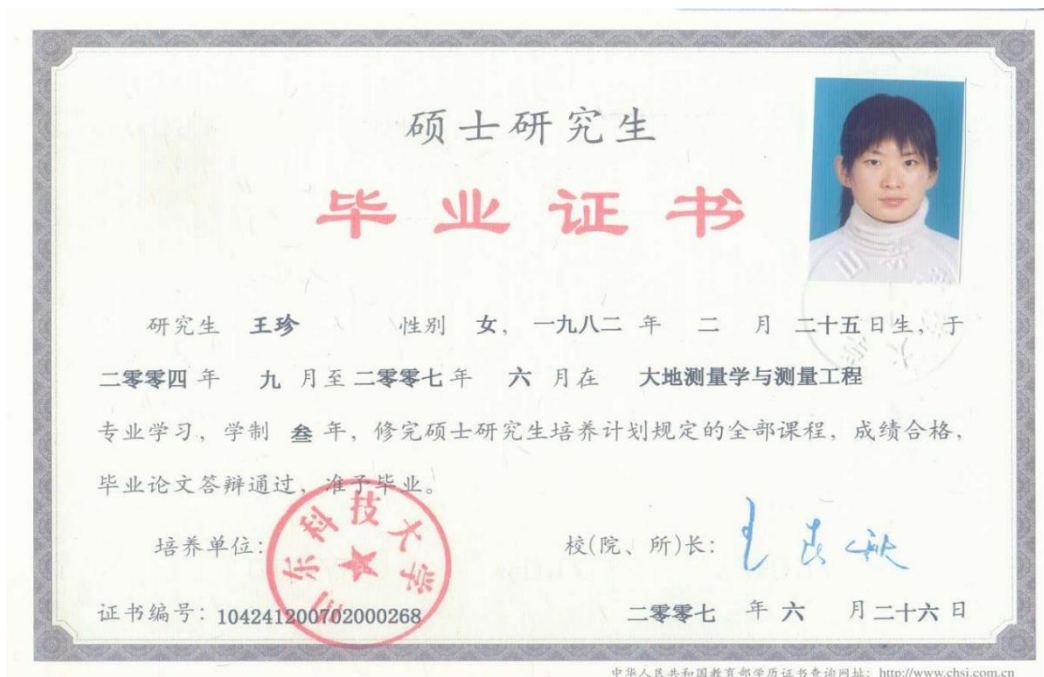 硕士研究生
毕业证书
研究生 王珍 性别 女, 一九八二 年 二 月 二十五日生, 于
二零零四 年 九 月至 二零零七 年 六 月在 大地测量学与测量工程
专业学习, 学制 叁 年, 修完硕士研究生培养计划规定的全部课程, 成绩合格,
毕业论文答辩通过, 准予毕业。
培养单位:
山东科技大学
校(院、所)长:
证书编号: 104241200702000268
二零零七 年 六 月 二十六 日
中华人民共和国教育部学历证书查询网址: http://www.chsi.com.cn